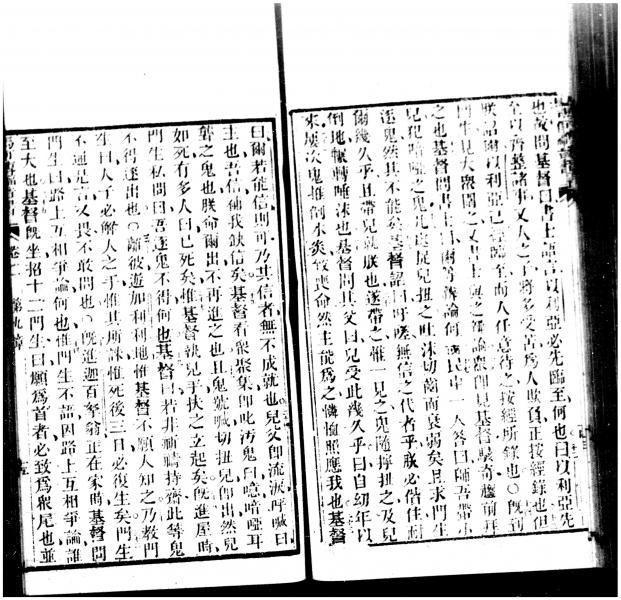 也故問基督曰書士語言以利亞必先臨至何也曰以利亞先
至以齊整諸事又人之子將多受苦爲人欺負正按經錄也但
朕語爾以利亞已經臨至而人任意待之按經所錄也○旣到
門生見大衆圍之又書士與之辯論衆卽見基督最奇趨前拜
之也基督問書士曰爾等辯論何耶民中一人答曰師吾帶小
兒犯瘖啞之鬼凡處展兒扭之吐沫切齒而衰弱矣且求門生
逐鬼然其不能矣基督詔曰吁嗟無信之代者乎朕必偕住耐
爾幾久乎且帶兒就朕也遂帶之惟一見之鬼隨擰扭之及兒
倒地輾轉唾沫也基督問其父曰兒受此幾久乎曰自幼年以
來屢次鬼推倒水炎致喪命然主能爲之憐恤照應我也基督
曰爾若能信則可乃其信者無不成就也兒父卽流淚呼喊曰
主也吾信補我缺信矣基督看衆聚集卽叱汚鬼曰噫瘖啞耳
聾之鬼也朕命爾出不再進之也且鬼號喊切扭兒卽出然兒
如死有多人曰已死矣惟基督執兒手扶之立起矣旣進屋時
門生私問曰吾逐鬼不得何也基督曰若非祈禱持齋此等鬼
不得逐出也○離彼遊加利利地惟基督不願人知之乃教門
生曰人子必解人之手惟其所誅惟死後三日必復生矣門生
不通是言又畏不敢問也○旣進迦百努翁正在家時基督問
門生曰路上互相爭論何也惟門生不語因路上互相爭論誰
至大也基督旣坐招十二門生曰願爲首者必致爲衆尾也並
第九章